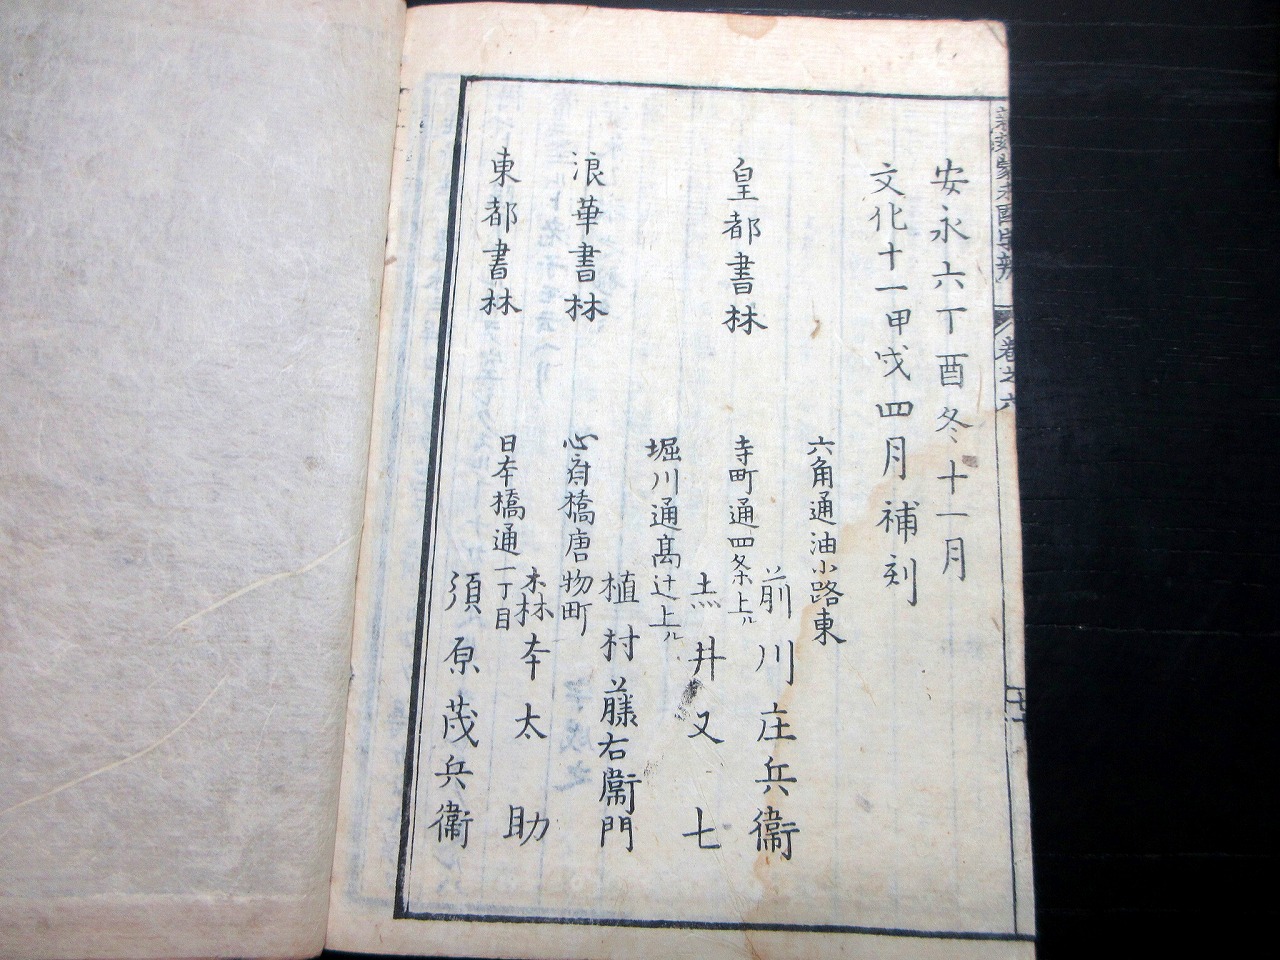 安永六丁酉冬十一月
文化十一甲戌四月補刻
皇都書林
六角通油小路東
前川庄兵衞
寺町通四条上ル
㷊井又七
堀川通髙辻上ル
植村藤右衞門
浪華書林
心斎橋唐物町
森本太助
東都書林
日本橋通一丁目
須原茂兵衞
卷之六